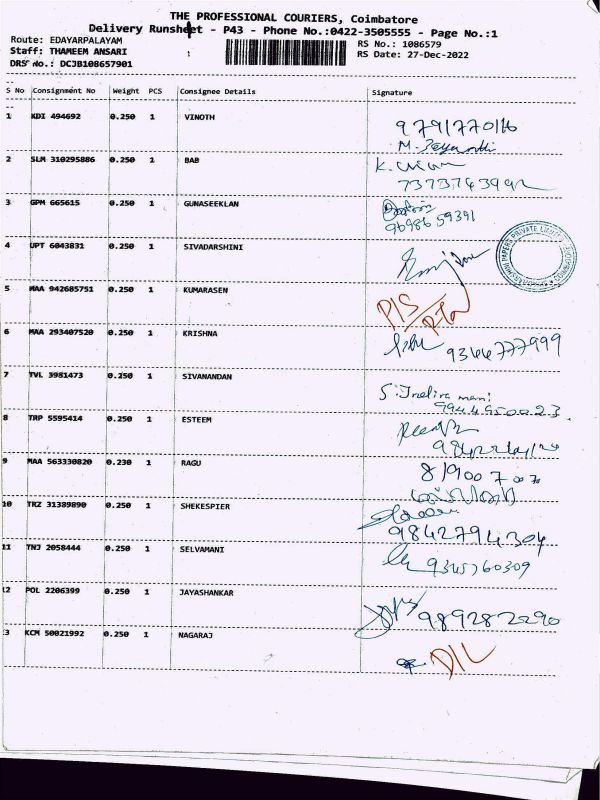 THE PROFESSIONAL COURIERS, Coimbatore
Delivery Runsheet - P43 - Phone No.:0422-3505555 - Page No.:1
Route: EDAYARPALAYAM RS No.: 1086579
Staff: THAMEEM ANSARI : RS Date: 27-Dec-2022
DRS No.: DCJB108657901
S No Consignment No Weight PCS Consignee Details Signature
1 KDI 494692 0.250 1 VINOTH
9791770116
2 SLM 310295886 0.250 1 BAB
K.
3 GPM 665615 0.250 1 GUNASEEKLAN
9698659391
4 UPT 6043831 0.250 1 SIVADARSHINI
5 MAA 942685751 0.250 1 KUMARASEN
6 MAA 293407520 0.250 1 KRISHNA
9344777999
7 TVL 3981473 0.250 1 SIVANANDAN
S. Indira mani
9944950023.
8 TRP 5595414 0.250 1 ESTEEM
9 MAA 563330820 0.230 1 RAGU
10 TRZ 31389890 0.250 1 SHEKESPIER
9842794304
11 TNJ 2058444 0.250 1 SELVAMANI
9345760309
12 POL 2206399 0.250 1 JAYASHANKAR
989282290
13 KCM 50021992 0.250 1 NAGARAJ
D/L